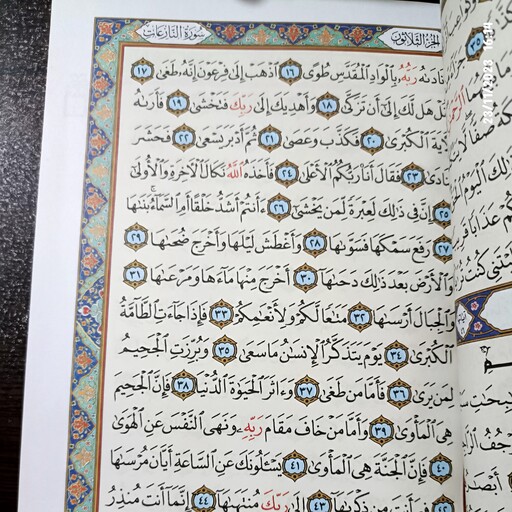 الجزء الثلاثون
سورة النازعات
نادىه ربه بالواد المقدس طوى ١٦ اذهب إلى فرعون إنه طغى ١٧
فقل هل لك إلى أن تزكى ١٨ وأهديك إلى ربك فتخشى ١٩ فأرىه
الآية الكبرى ٢٠ فكذب وعصى ٢١ ثم أدبر يسعى ٢٢ فحشر
فنادى ٢٣ فقال أنا ربكم الأعلى ٢٤ فأخذه الله نكال الآخرة والأولى
٢٥ إن في ذلك لعبرة لمن يخشى ٢٦ ءأنتم أشد خلقا أم السماء بنىها
٢٧ رفع سمكها فسوىها ٢٨ وأغطش ليلها وأخرج ضحىها ٢٩
والأرض بعد ذلك دحىها ٣٠ أخرج منها ماءها ومرعىها ٣١
والجبال أرسىها ٣٢ متاعا لكم ولأنعامكم ٣٣ فإذا جاءت الطامة
الكبرى ٣٤ يوم يتذكر الإنسان ما سعى ٣٥ وبرزت الجحيم
لمن يرى ٣٦ فأما من طغى ٣٧ وءاثر الحيوة الدنيا ٣٨ فإن الجحيم
هي المأوى ٣٩ وأما من خاف مقام ربه ونهى النفس عن الهوى
٤٠ فإن الجنة هي المأوى ٤١ يسئلونك عن الساعة أيان مرسىها
٤٢ فيم أنت من ذكرىها ٤٣ إلى ربك منتهىها ٤٤ إنما أنت منذر
23/11/2023